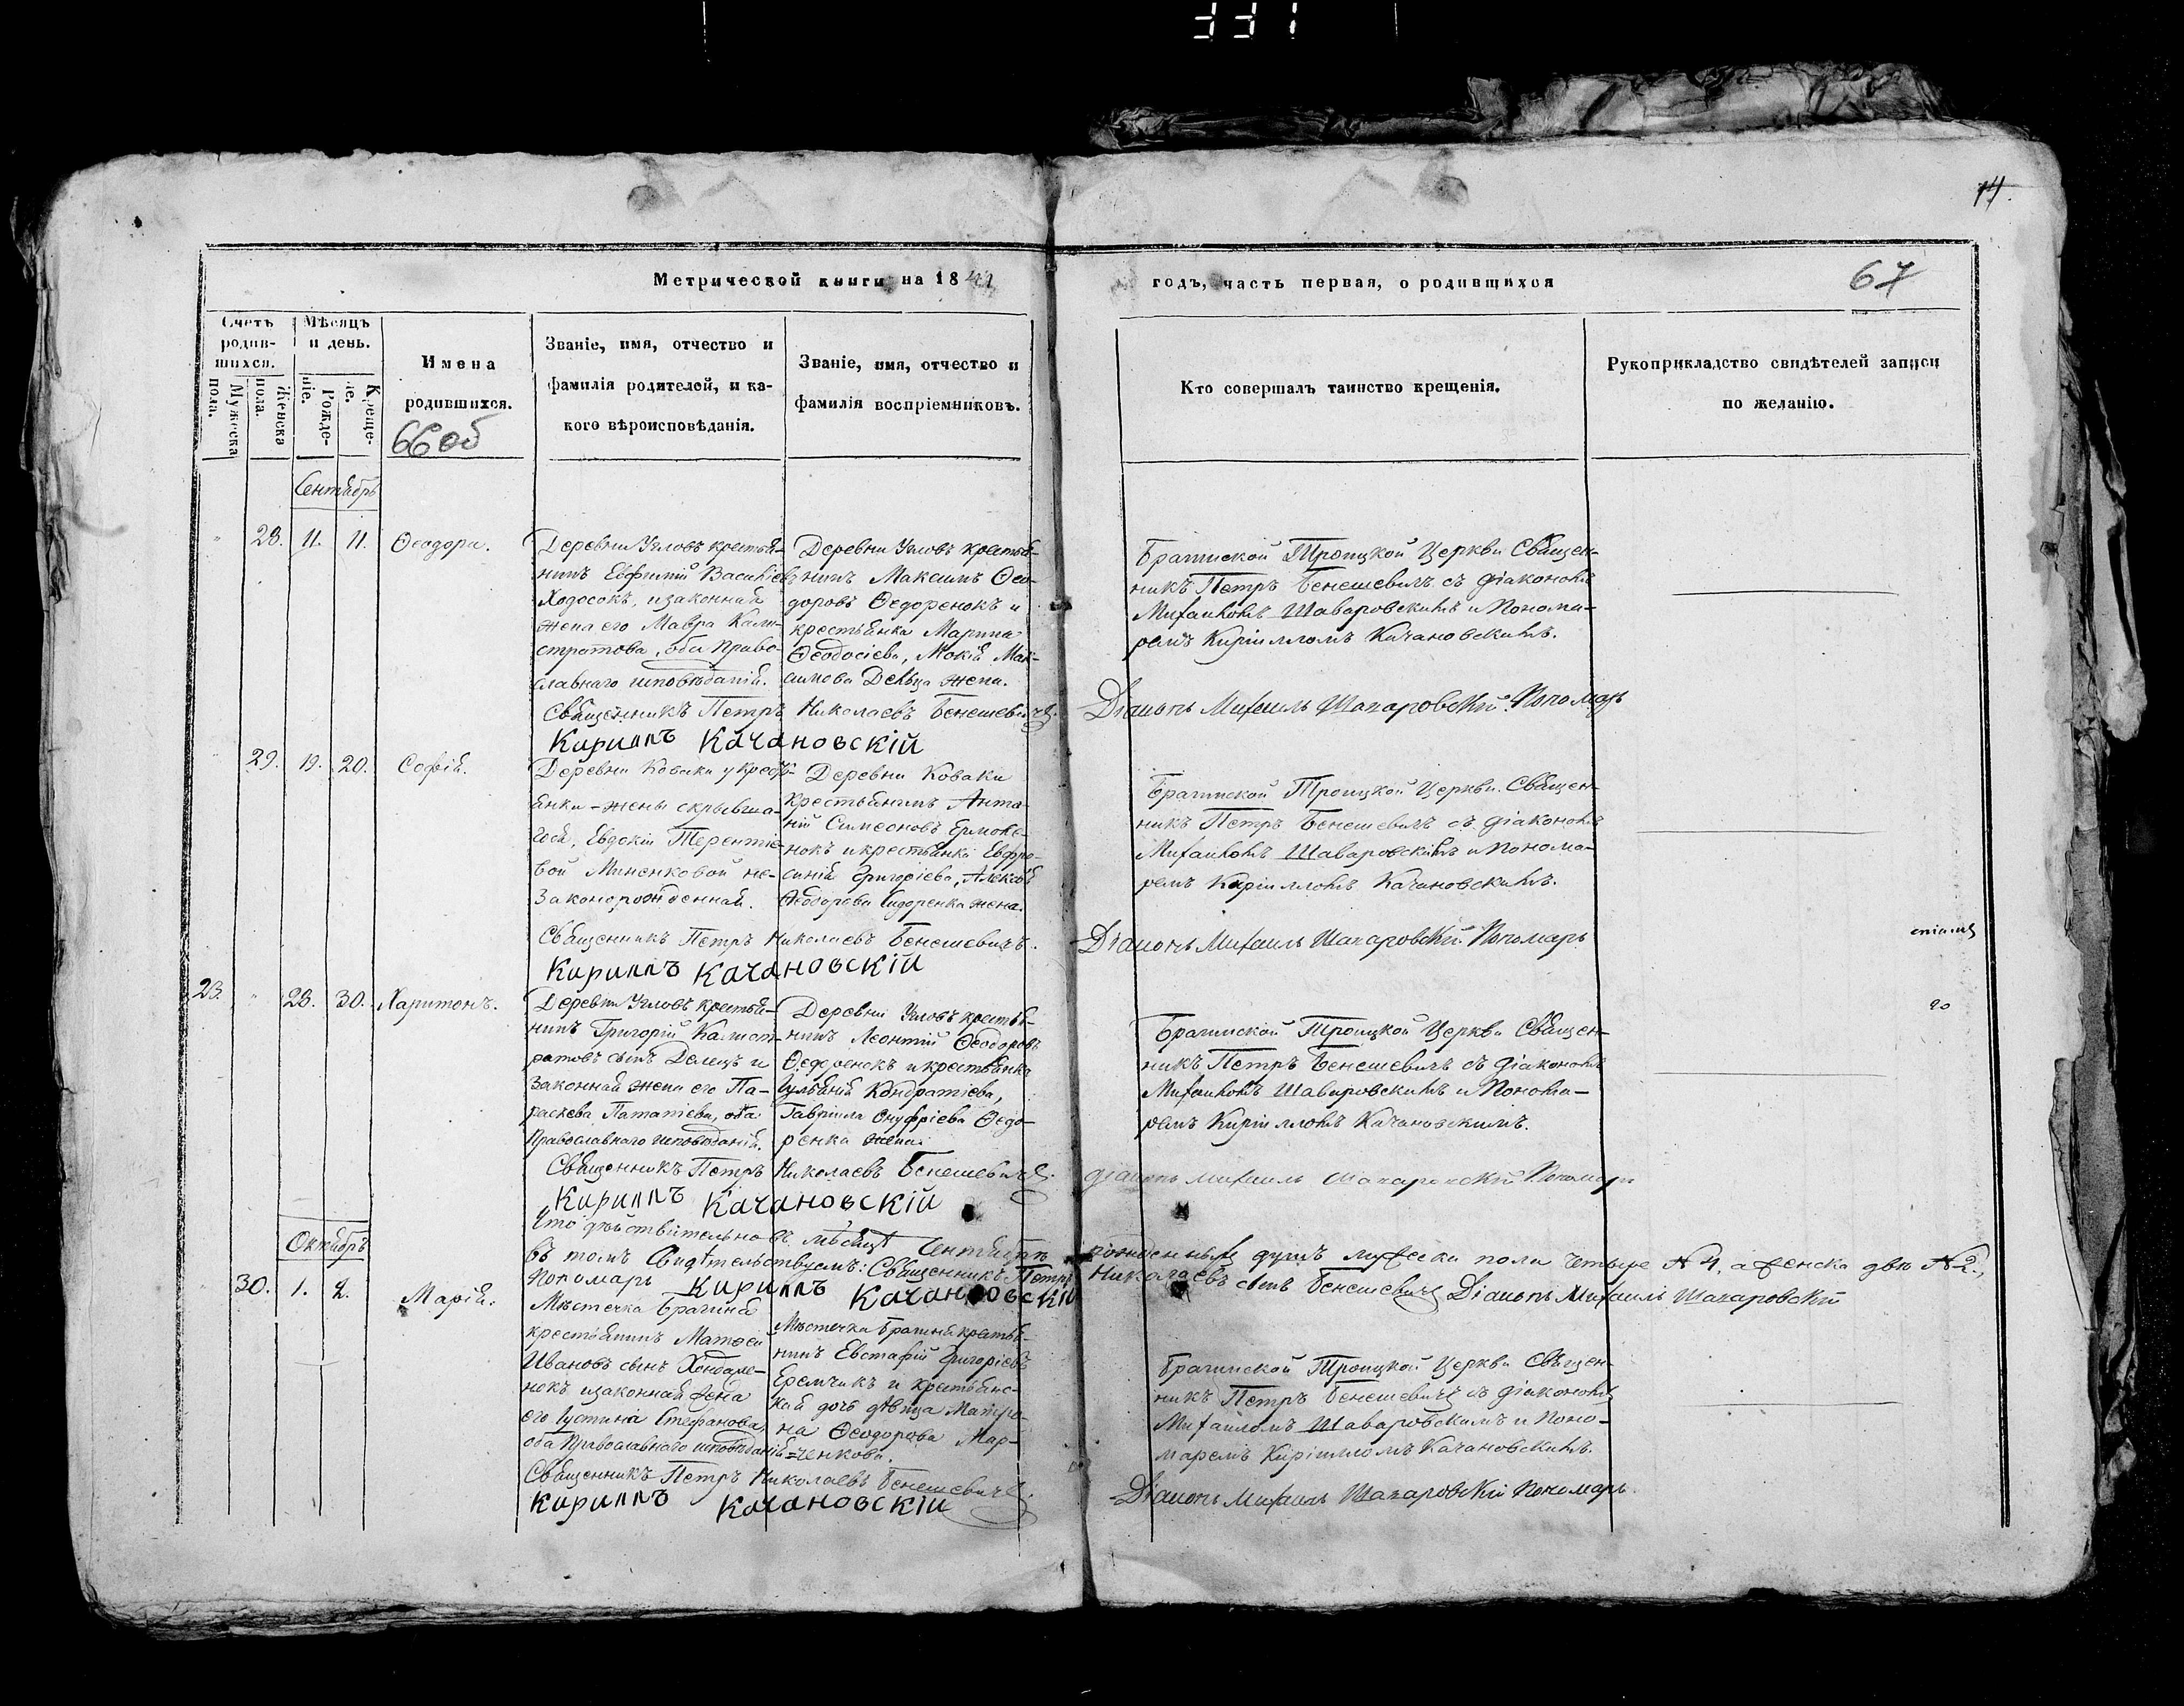 331
14.
Метрической книги на 1841
годъ, часть первая, о родившихся
67
Счетъ родив-
шихся.
Мужеска
пола.
Женска
пола.
Мѣсяцъ
и день.
Рожде-
ніе.
Креще-
Имена
родившихся.
66 об
Званіе, имя, отчество и
фамилія родителей, и ка-
кого вѣроисповѣданія.
Званіе, имя, отчество и
фамилія воспріемниковъ.
Кто совершалъ таинство крещенія.
Рукоприкладство свидѣтелей записи
по желанію.
Сентябрь
28. 11. 11. Ѳеодора.
Деревни Угловъ крестья-
нинъ Евфимій Василіевъ
Ходосокъ, и законная
жена его Мавра Кали-
стратова, оба Право-
славнаго исповѣданія.
Деревни Угловъ крестья-
нинъ Максимъ Ѳео-
доровъ Ѳедоренокъ и
крестьянка Марина
Ѳеодосіева, Мак-
симова Дельца жена.
Брагинской Троицкой Церкви Священ-
никъ Петръ Бенешевичъ съ діакономъ
Михаиломъ Шаваровскимъ и Понома-
ремъ Кирилломъ Качановскимъ.
Священникъ Петръ Николаевъ Бенешевичъ.
Діаконъ Михаилъ Шаваровскій. Пономарь
Кириллъ Качановскій
29. 19. 20. Софія.
Деревни Коваки у кресть-
янки - жены скрывша-
гося, Евдокіи Терентіе-
вой Миненковой не-
законорожденная.
Деревни Коваки
крестьянинъ Анто-
ній Симеоновъ Ермоле-
нокъ и крестьянка Евфро-
синія Григоріева, Алексѣя
Ѳеодорова Сидоренка жена.
Брагинской Троицкой Церкви Священ-
никъ Петръ Бенешевичъ съ діакономъ
Михаиломъ Шаваровскимъ и Понома-
ремъ Кирилломъ Качановскимъ.
Священникъ Петръ Николаевъ Бенешевичъ.
Діаконъ Михаилъ Шаваровскій Пономарь
Кириллъ Качановскій
23. " 28. 30. Харитонъ.
Деревни Угловъ крестья-
нинъ Григорій Калист-
ратовъ сынъ Делецъ и
Законная жена его Па-
раскева Патапіева, оба
Православнаго исповѣданія.
Деревни Угловъ крестья-
нинъ Леонтій Ѳеодоровъ
Ѳедоренокъ и крестьянка
Іуліанія Кондратіева,
Гавріила Онуфріева Ѳедо-
ренка жена.
Брагинской Троицкой Церкви Священ-
никъ Петръ Бенешевичъ съ діакономъ
Михаиломъ Шаваровскимъ и Понома-
ремъ Кирилломъ Качановскимъ.
Священникъ Петръ Николаевъ Бенешевичъ.
діаконъ Михаилъ Шаваровскій Пономарь
Кириллъ Качановскій
Что дѣйствительно въ мѣсяцѣ Сентябрѣ рожденныхъ душъ мужеска пола четыре № 4, а женска двѣ № 2.,
въ томъ свидѣтельствуемъ: Священникъ Петръ Николаевъ сынъ Бенешевичъ Діаконъ Михаилъ Шаваровскій
Пономарь Кириллъ Качановскій
Октябрь
30. 1. 2. Марія.
Мѣстечка Брагина
крестьянинъ Матѳей
Ивановъ сынъ Хондале-
нокъ и законная жена
его Іустина Стефанова,
оба Православнаго исповѣданія
Мѣстечка Брагина крестья-
нинъ Евстафій Григоріевъ
Еремчикъ и крестьянс-
кая дочь дѣвица Матро-
на Ѳеодорова Мар-
ченкова.
Брагинской Троицкой Церкви Священ-
никъ Петръ Бенешевичъ съ діакономъ
Михаиломъ Шаваровскимъ и Поно-
маремъ Кирилломъ Качановскимъ.
Священникъ Петръ Николаевъ Бенешевичъ.
Діаконъ Михаилъ Шаваровскій Пономарь
Кириллъ Качановскій